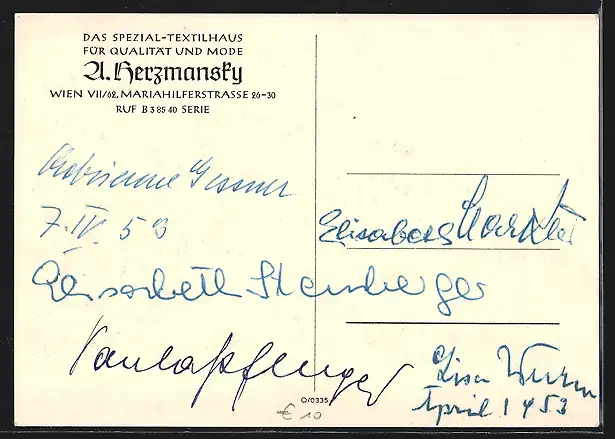 DAS SPEZIAL-TEXTILHAUS
FÜR QUALITÄT UND MODE
A. Herzmansky
WIEN VII/62, MARIAHILFERSTRASSE 26-30
RUF B 3 85 40 SERIE
Adrienne Gessner
7. IV. 53
Elisabeth Markus
Elisabeth Stemberger
Paula Pfluger
Lisa Wurm
April 1953
Q/0335
€ 10